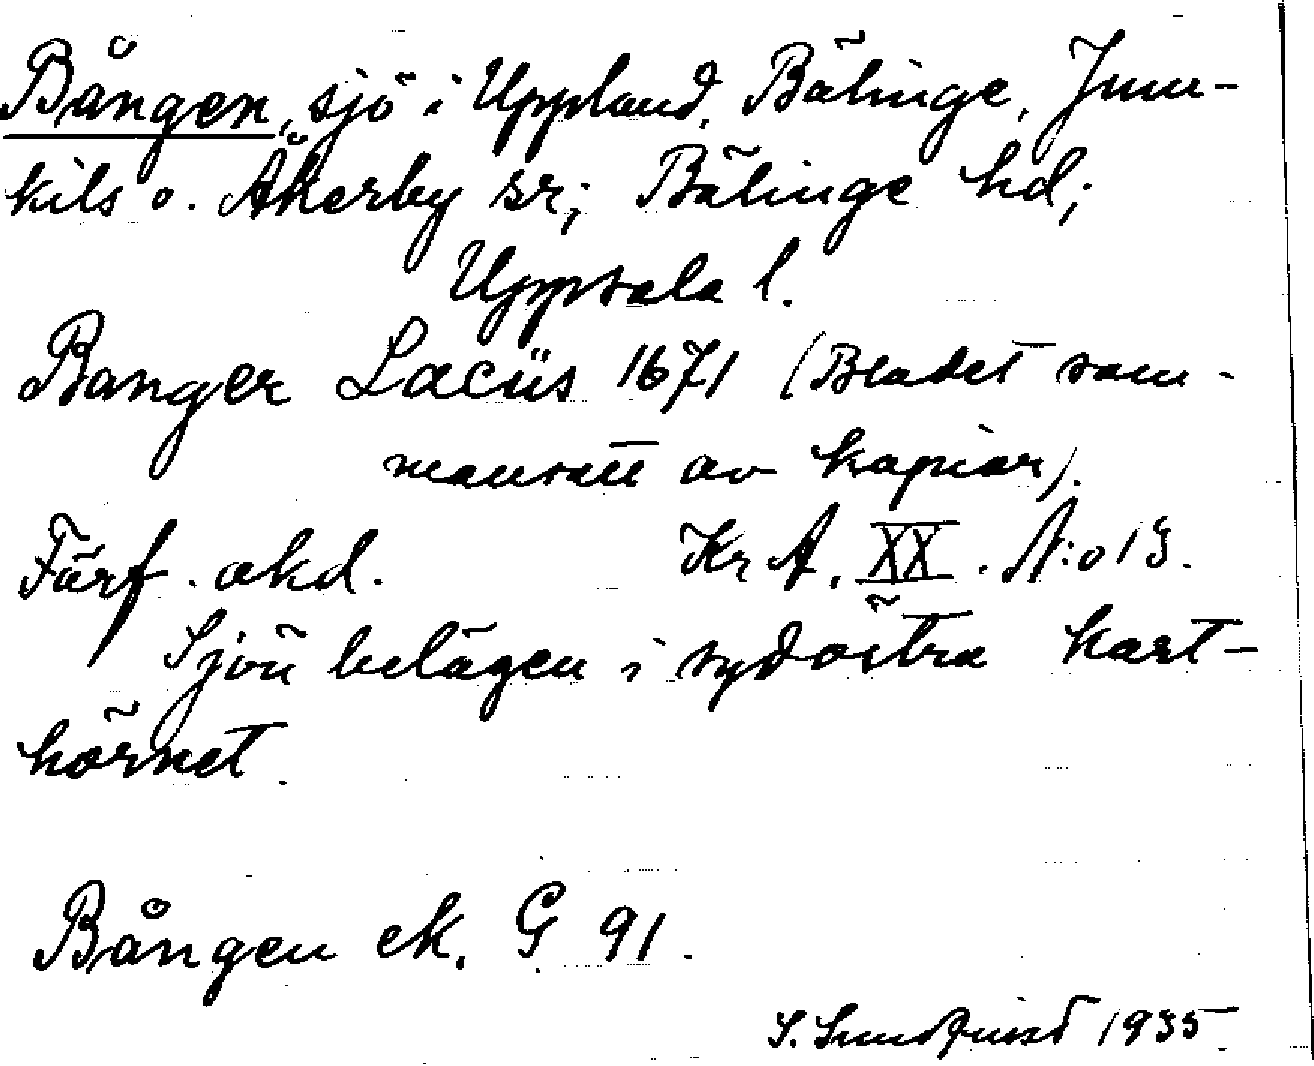 Bången, sjö i Uppland, Bälinge, Jum-
kils o. Åkerby sr; Bälinge hd;
Uppsala l.
Banger Lacüs 1671 (Bladet sam-
mansatt av kopior).
Förf. okd. KrA. XX. N:o 13.
Sjön belägen i sydöstra kart-
hörnet.
Bången ek. G 91.
S. Sundquist 1935